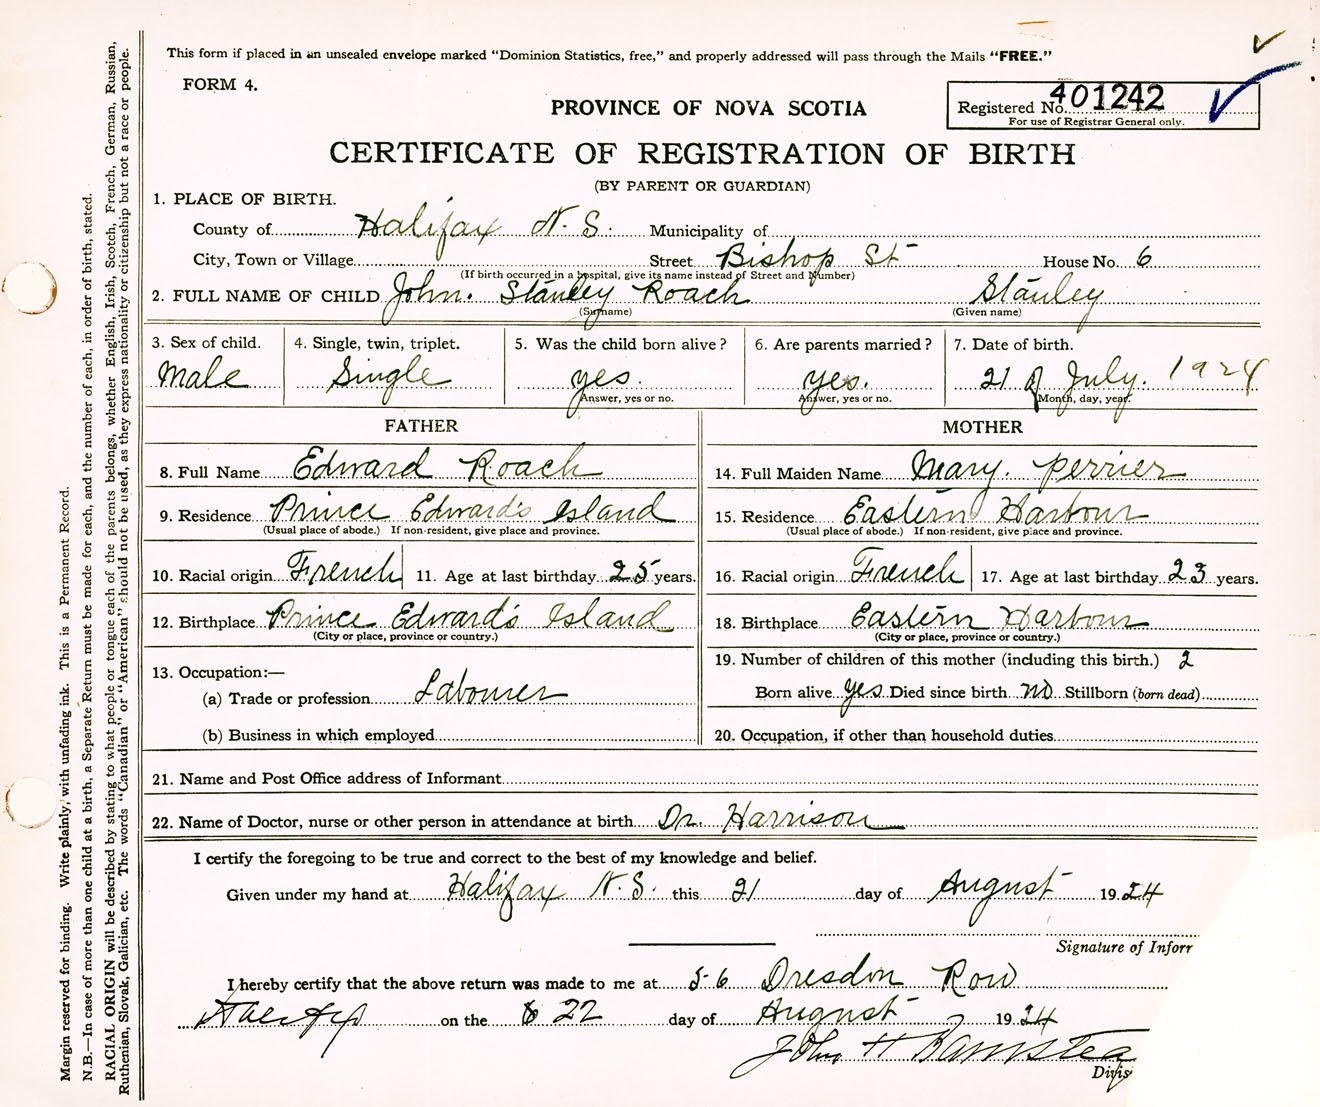 This form if placed in an unsealed envelope marked "Dominion Statistics, free," and properly addressed will pass through the Mails "FREE."
FORM 4.
PROVINCE OF NOVA SCOTIA
Registered No. 401242
For use of Registrar General only.
CERTIFICATE OF REGISTRATION OF BIRTH
(BY PARENT OR GUARDIAN)
1. PLACE OF BIRTH.
County of Halifax N. S. Municipality of
City, Town or Village Street Bishop St House No. 6
(If birth occurred in a hospital, give its name instead of Street and Number)
2. FULL NAME OF CHILD John. Stanley Roach Stanley
(Surname) (Given name)
3. Sex of child. 4. Single, twin, triplet. 5. Was the child born alive? 6. Are parents married? 7. Date of birth.
Male Single yes. yes. 21 of July. 1924
Answer, yes or no. Answer, yes or no. Month, day, year.
FATHER MOTHER
8. Full Name Edward Roach 14. Full Maiden Name Mary. Perrier
9. Residence Prince Edward's Island 15. Residence Eastern Harbour
(Usual place of abode.) If non-resident, give place and province. (Usual place of abode.) If non-resident, give place and province.
10. Racial origin French 11. Age at last birthday 25 years. 16. Racial origin French 17. Age at last birthday 23 years.
12. Birthplace Prince Edward's Island 18. Birthplace Eastern Harbour
(City or place, province or country.) (City or place, province or country.)
13. Occupation:— 19. Number of children of this mother (including this birth.) 2
(a) Trade or profession Labourer Born alive yes Died since birth no Stillborn (born dead)
(b) Business in which employed 20. Occupation, if other than household duties
21. Name and Post Office address of Informant
22. Name of Doctor, nurse or other person in attendance at birth Dr. Harrison
I certify the foregoing to be true and correct to the best of my knowledge and belief.
Given under my hand at Halifax N. S. this 21 day of August 1924
Signature of Inforr
I hereby certify that the above return was made to me at 56 Dresdon Row
on the 22 day of August 1924
John H
Divis
Margin reserved for binding. Write plainly, with unfading ink. This is a Permanent Record.
N.B.—In case of more than one child at a birth, a Separate Return must be made for each, and the number of each, in order of birth, stated.
RACIAL ORIGIN will be described by stating to what people or tongue each of the parents belongs, whether English, Irish, Scotch, French, German, Russian,
Ruthenian, Slovak, Galician, etc. The words "Canadian" or "American" should not be used, as they express nationality or citizenship but not a race or people.